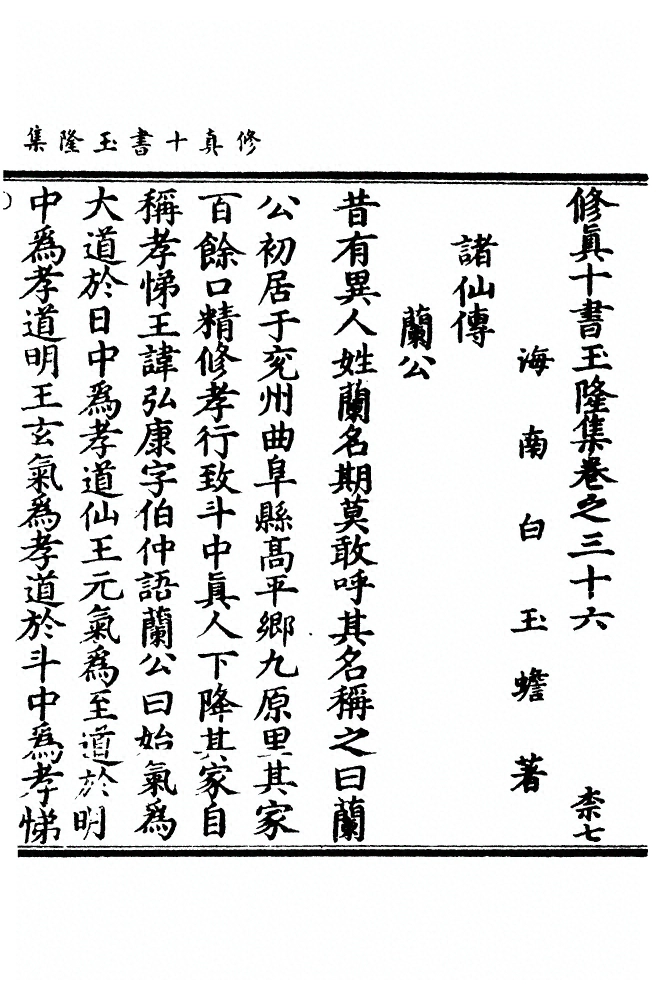 修真十書玉隆集
修真十書玉隆集卷之三十六
柰七
海南白玉蟾著
諸仙傳
蘭公
昔有異人姓蘭名期莫敢呼其名稱之曰蘭
公初居于兖州曲阜縣高平鄉九原里其家
百餘口精修孝行致斗中真人下降其家自
稱孝悌王諱弘康字伯仲語蘭公曰始氣爲
大道於日中爲孝道仙王元氣爲至道於明
中爲孝道明王玄氣爲孝道於斗中爲孝悌